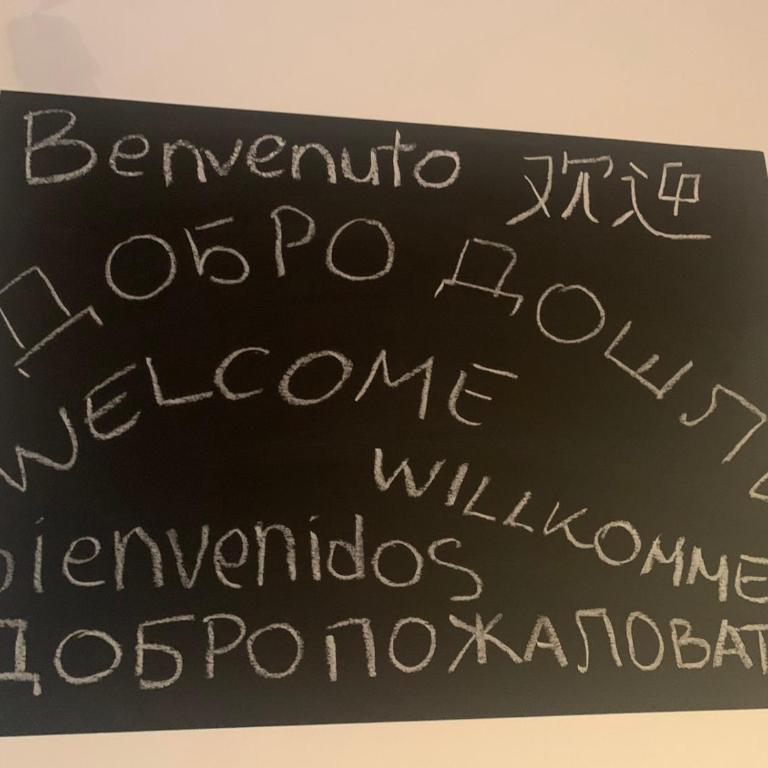 Benvenuto 欢迎
ДОБРО ДОШЛ
WELCOME
WILLKOMME
bienvenidos
ДОБРОПОЖАЛОВАТ